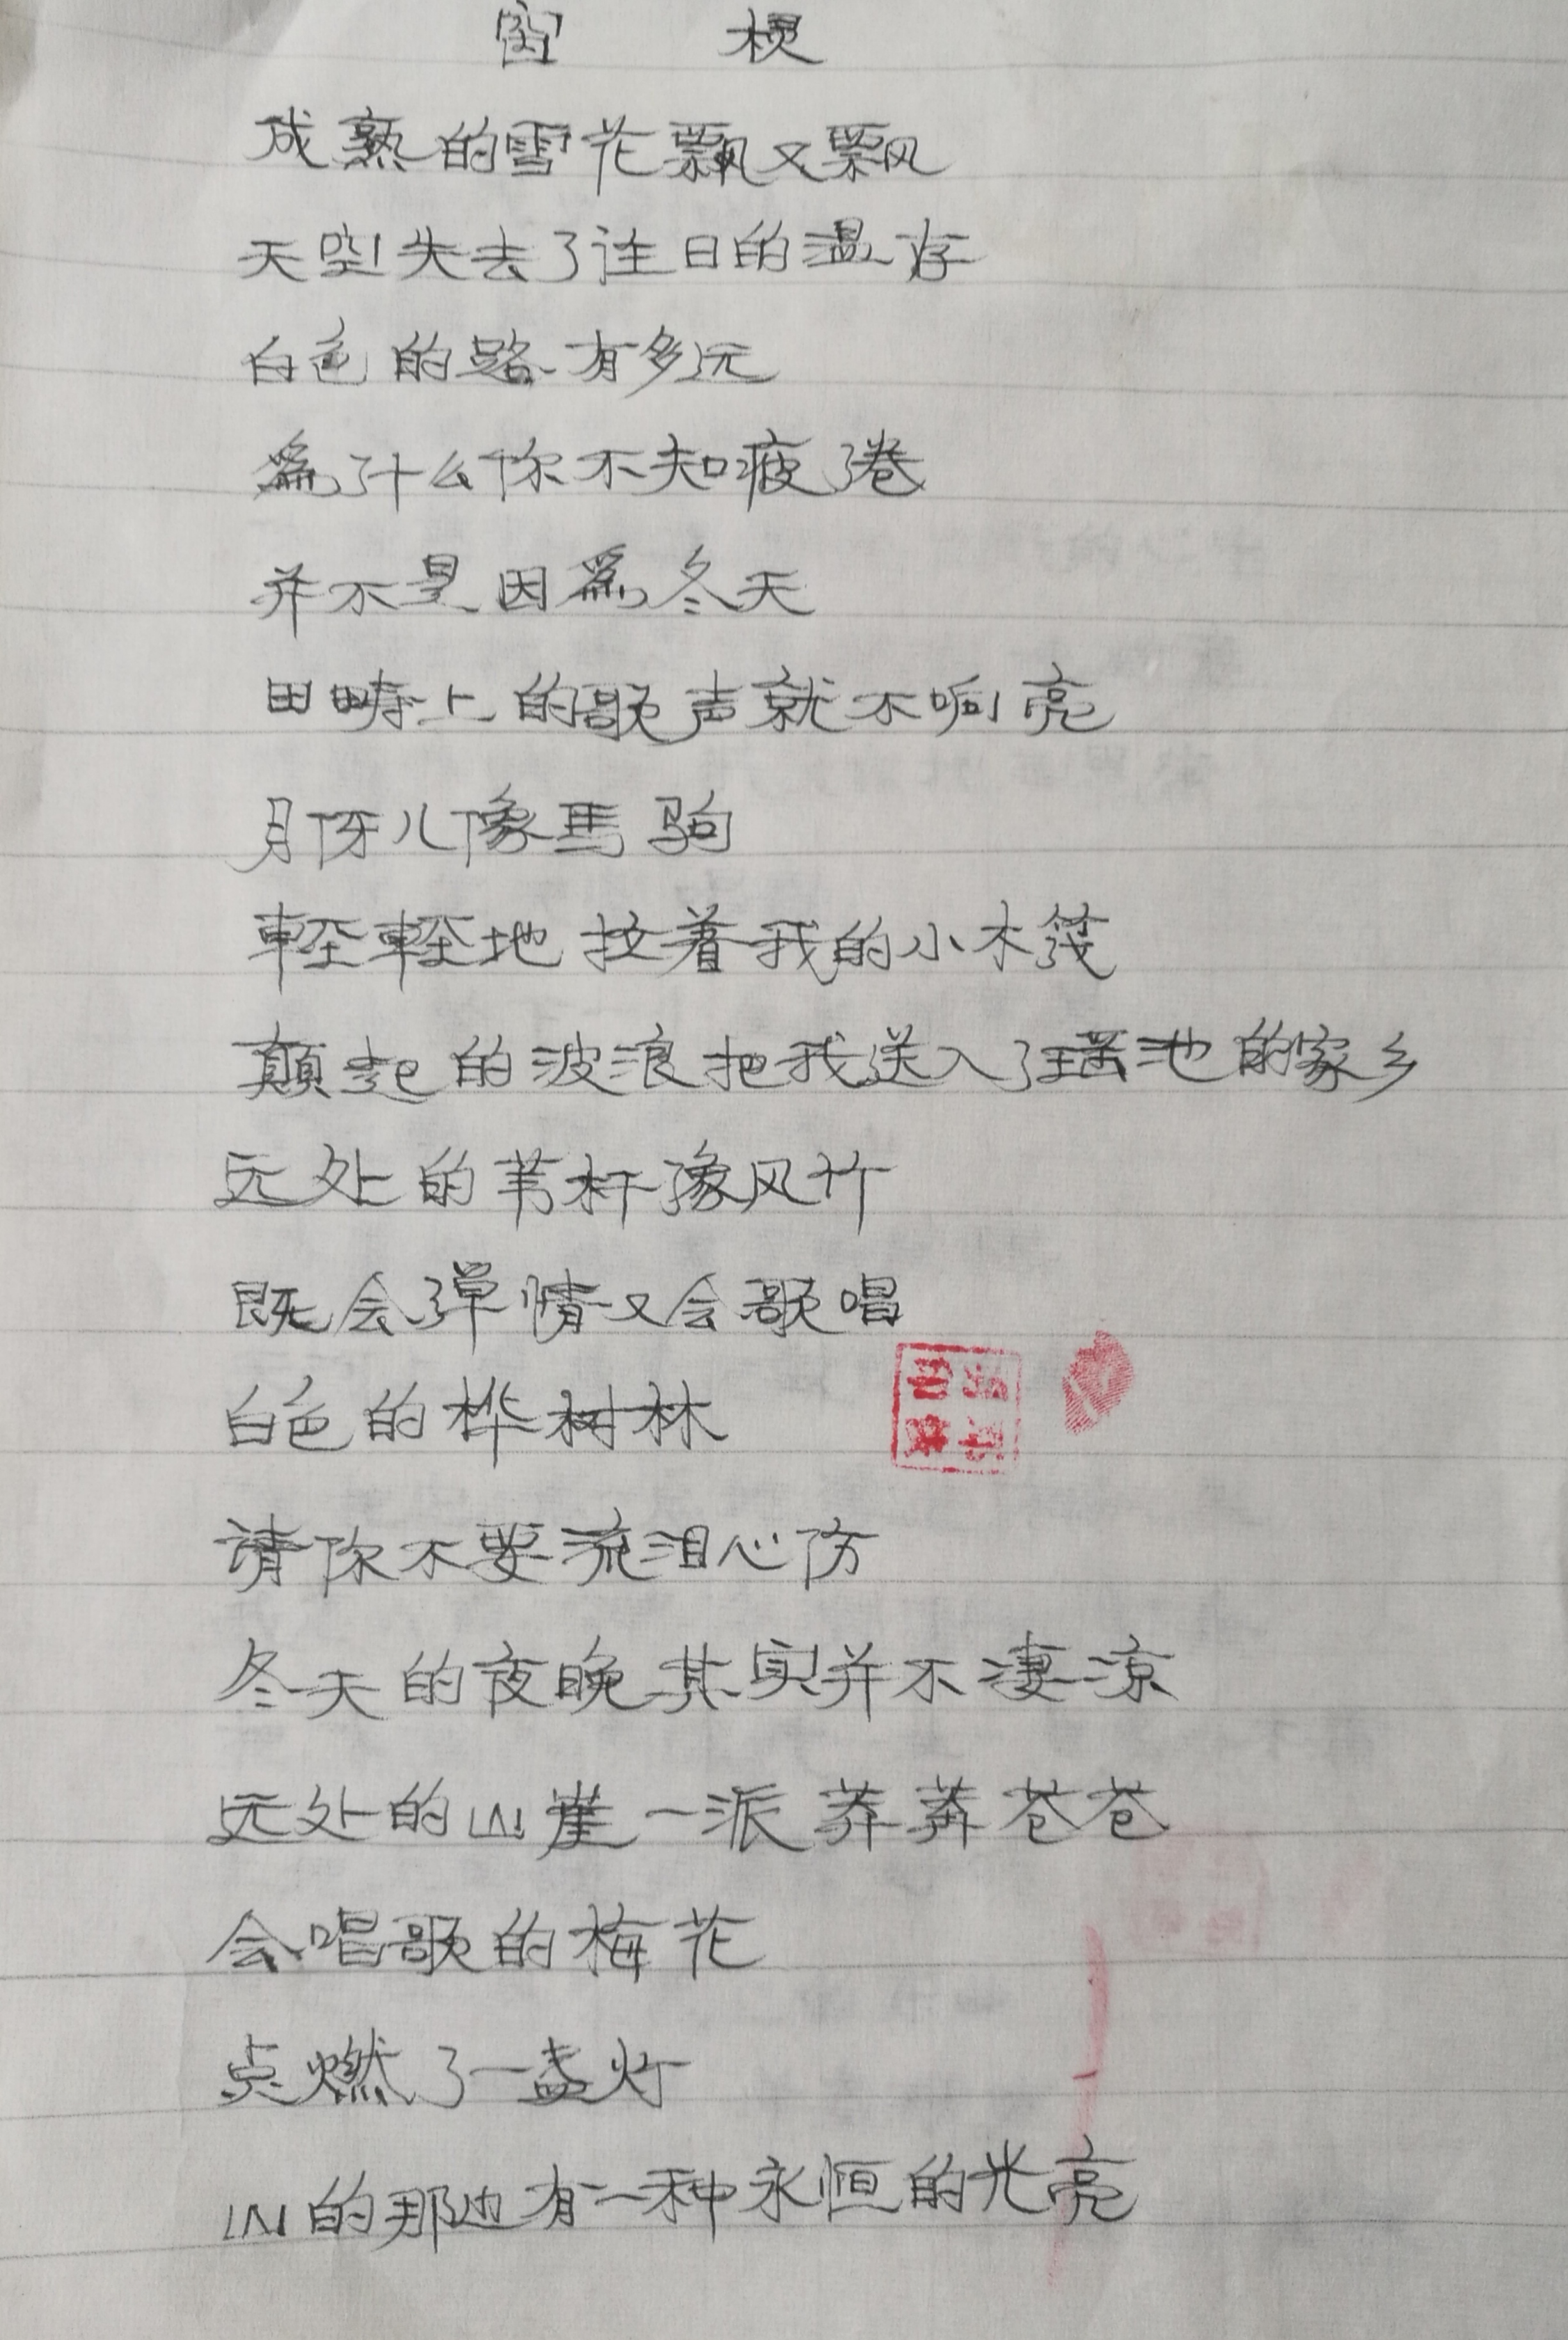 窗 棂
成熟的雪花飘又飘
天空失去了往日的温存
白色的路有多远
為了什么你不知疲倦
并不是因為冬天
田畴上的歌声就不响亮
月伢儿像馬驹
輕輕地拉着我的小木筏
颠起的波浪把我送入了瑶池的家乡
远处的苇杆像风竹
既会弹情又会歌唱
白色的桦树林
请你不要流泪心伤
冬天的夜晚其实并不凄凉
远处的山崖一派莽莽苍苍
会唱歌的梅花
点燃了一盏灯
山的那边有一种永恒的光亮